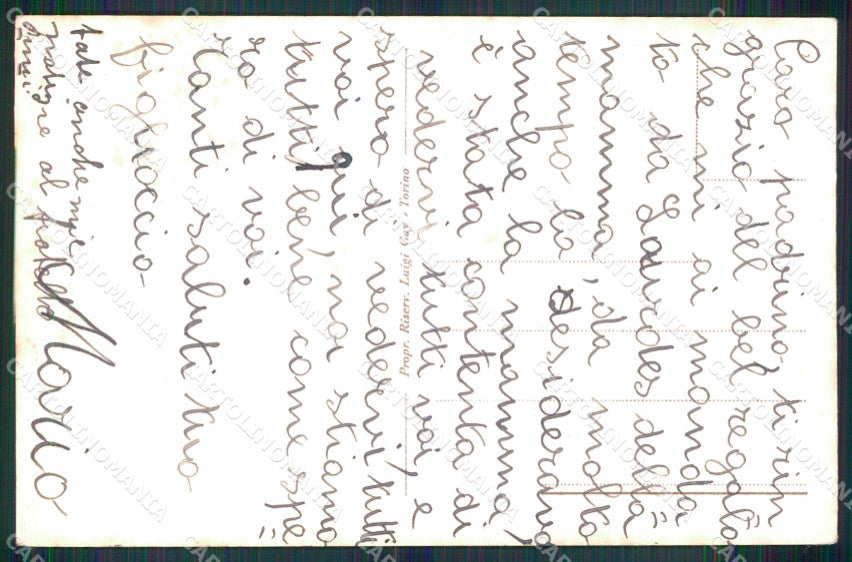 Caro padrino, ti rin
grazio del bel regalo
che mi ai manda
to da Lourdes della
mamma, da molto
tempo lo desiderava,
anche la mamma,
è stata contenta di
vedervi tutti voi, e
spero di vedervi, tutti
voi qui, noi stiamo
tutti bene come spe=
ro di voi.
Tanti saluti tuo
figlioccio
Mario
fate anche mie
al
Propr. Riserv. Luigi Gay - Torino
CARTOLINOMANIA